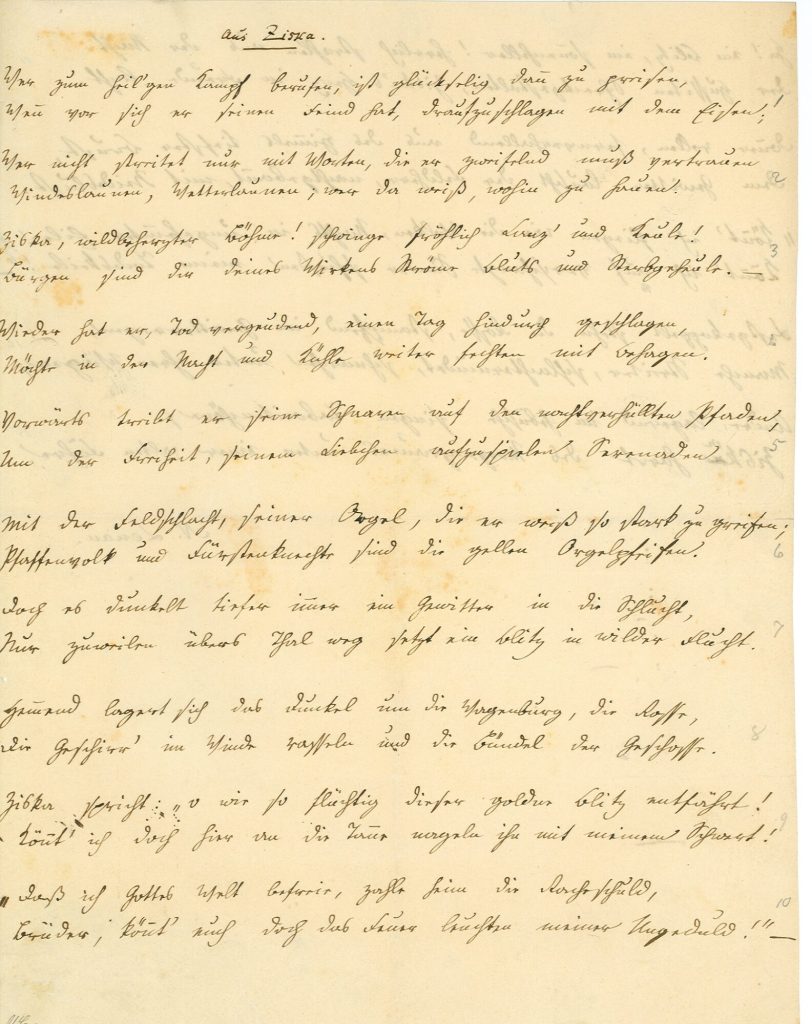 Aus Ziska.
Wer zum heil'gen Kampf berufen, ist glückselig dann zu preisen,
Wenn vor sich er seinen Feind hat, draufzuschlagen mit dem Eisen;
Wer nicht streitet nur mit Worten, die er zweifelnd muß vertrauen
Windeslaunen, Wetterlaunen; wer da weiß, wohin zu hauen.
2
Ziska, wildbeherzter Böhme! schwinge fröhlich Lanz' und Keule!
Bürgen sind dir deines Wirkens Ströme Bluts und Sterbgeheule. —
3
Wieder hat er, Tod vergeudend, einen Tag hindurch geschlagen,
Möchte in der Nacht und Kühle weiter fechten mit Behagen.
Vorwärts treibt er seine Schaaren auf den nachtverhüllten Pfaden,
Um der Freiheit, seinem Liebchen aufzuspielen Serenaden
5
Mit der Feldschlacht, seiner Orgel, die er weiß so stark zu greifen;
Pfaffenvolk und Fürstenknechte sind die gellen Orgelpfeifen.
6
Doch es dunkelt tiefer immer ein Gewitter in die Schlucht,
Nur zuweilen übers Thal weg setzt ein Blitz in wilder Flucht.
7
Hemmend lagert sich das Dunkel um die Wagenburg, die Rosse,
Die Geschirr' im Winde rasseln und die Bündel der Geschosse.
8
Ziska spricht: „o wie so flüchtig dieser goldne Blitz entfährt!
Könnt' ich doch hier an die Tanne nageln ihn mit meinem Schwert!
9
„Daß ich Gottes Welt befreie, zahle heim die Racheschuld,
Brüder, könnt' euch doch das Feuer leuchten meiner Ungeduld!" —
10